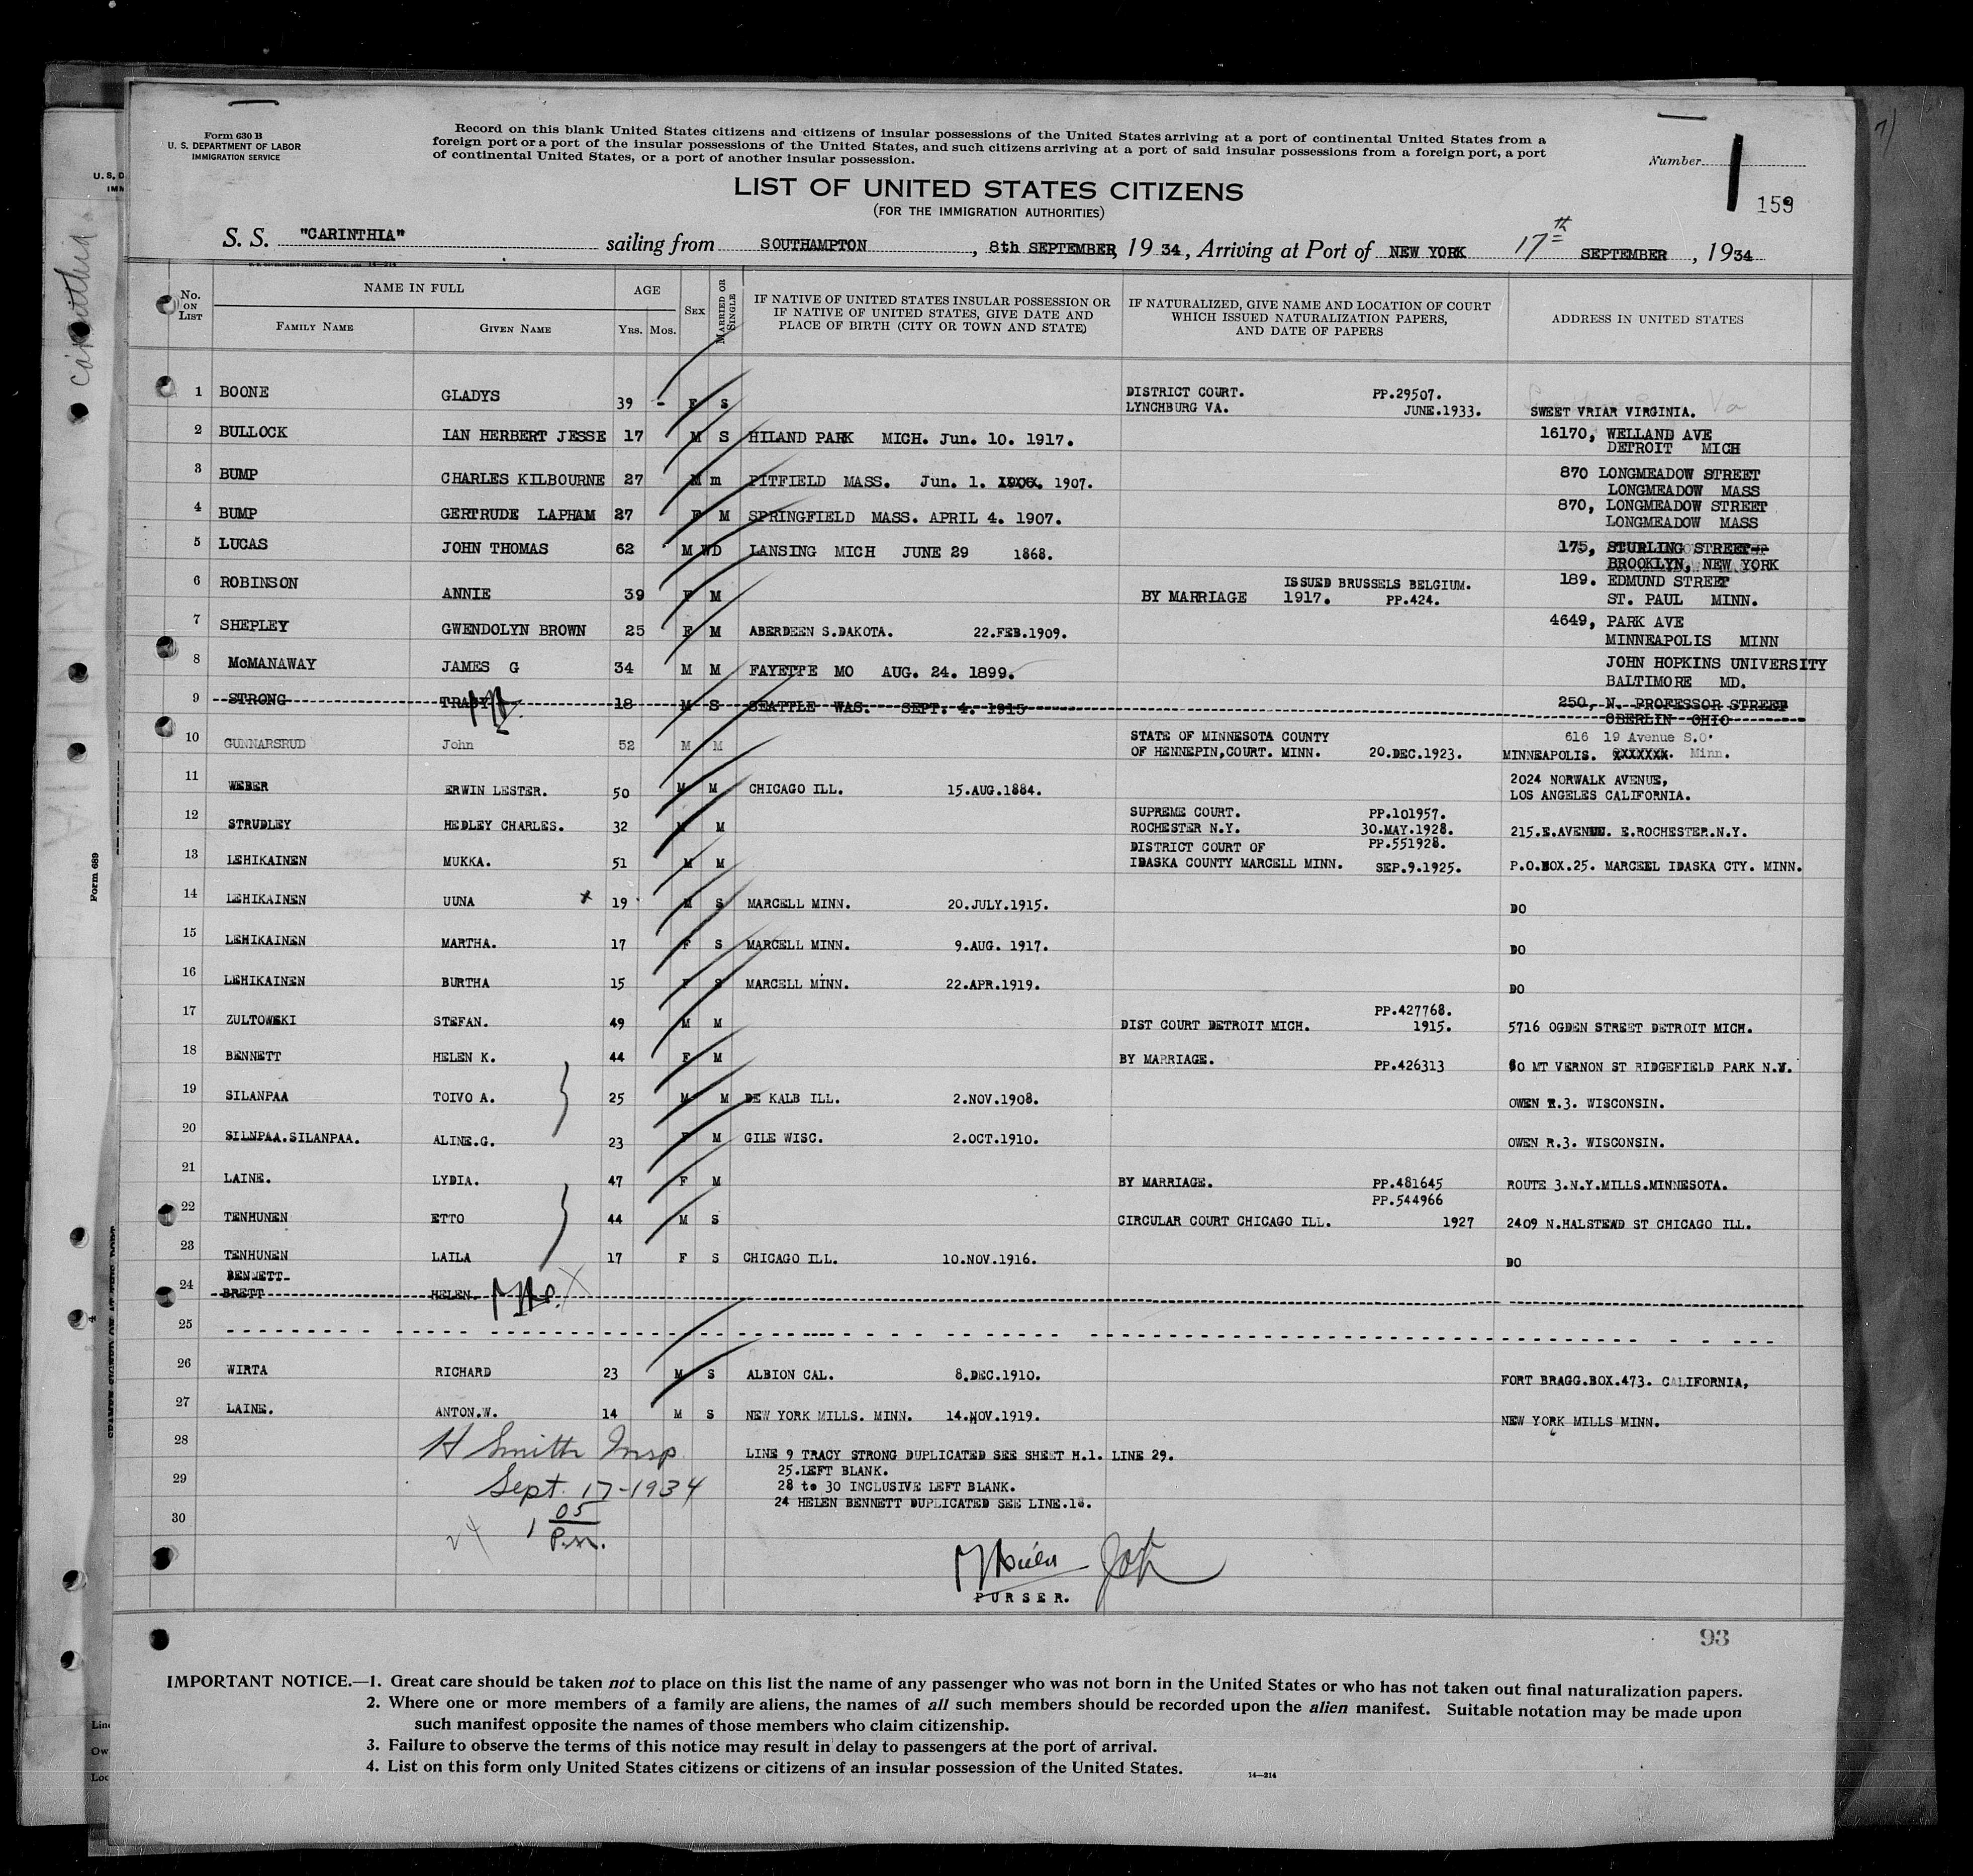 Form 630 B
U. S. DEPARTMENT OF LABOR
IMMIGRATION SERVICE
Record on this blank United States citizens and citizens of insular possessions of the United States arriving at a port of continental United States from a
foreign port or a port of the insular possessions of the United States, and such citizens arriving at a port of said insular possessions from a foreign port, a port
of continental United States, or a port of another insular possession.
Number 1
159
LIST OF UNITED STATES CITIZENS
(FOR THE IMMIGRATION AUTHORITIES)
S. S. "CARINTHIA" sailing from SOUTHAMPTON, 8th SEPTEMBER, 1934, Arriving at Port of NEW YORK 17th SEPTEMBER, 1934
No. ON LIST
NAME IN FULL
FAMILY NAME
GIVEN NAME
AGE
YRS. MOS.
SEX
MARRIED OR SINGLE
IF NATIVE OF UNITED STATES INSULAR POSSESSION OR
IF NATIVE OF UNITED STATES, GIVE DATE AND
PLACE OF BIRTH (CITY OR TOWN AND STATE)
IF NATURALIZED, GIVE NAME AND LOCATION OF COURT
WHICH ISSUED NATURALIZATION PAPERS,
AND DATE OF PAPERS
ADDRESS IN UNITED STATES
1 BOONE GLADYS 39 - F S DISTRICT COURT. PP.29507.
LYNCHBURG VA. JUNE.1933. SWEET VRIAR VIRGINIA.
2 BULLOCK IAN HERBERT JESSE 17 M S HILAND PARK MICH. Jun. 10. 1917. 16170, WELLAND AVE
DETROIT MICH
3 BUMP CHARLES KILBOURNE 27 M m PITFIELD MASS. Jun. 1. 1907. 870 LONGMEADOW STREET
LONGMEADOW MASS
4 BUMP GERTRUDE LAPHAM 27 F M SPRINGFIELD MASS. APRIL 4. 1907. 870, LONGMEADOW STREET
LONGMEADOW MASS
5 LUCAS JOHN THOMAS 62 M WD LANSING MICH JUNE 29 1868. 175, STURLING STREET
BROOKLYN, NEW YORK
6 ROBINSON ANNIE 39 F M ISSUED BRUSSELS BELGIUM.
BY MARRIAGE 1917. PP.424. 189. EDMUND STREET
ST. PAUL MINN.
7 SHEPLEY GWENDOLYN BROWN 25 F M ABERDEEN S.DAKOTA. 22.FEB.1909. 4649, PARK AVE
MINNEAPOLIS MINN
8 McMANAWAY JAMES G 34 M M FAYETTE MO AUG. 24. 1899. JOHN HOPKINS UNIVERSITY
BALTIMORE MD.
9 STRONG TRACY 18 M S SEATTLE WAS. SEPT. 4. 1915 250, N. PROFESSOR STREET
OBERLIN OHIO
10 GUNNARSRUD John 52 M M STATE OF MINNESOTA COUNTY
OF HENNEPIN, COURT. MINN. 20.DEC.1923. 616 19 Avenue S.O.
MINNEAPOLIS. XXXXXXX. Minn.
11 WEBER ERWIN LESTER. 50 M M CHICAGO ILL. 15.AUG.1884. 2024 NORWALK AVENUE,
LOS ANGELES CALIFORNIA.
12 STRUDLEY HEDLEY CHARLES. 32 M M SUPREME COURT. PP.101957.
ROCHESTER N.Y. 30.MAY.1928. 215.E.AVENUE. E.ROCHESTER.N.Y.
13 LEHIKAINEN MUKKA. 51 M M DISTRICT COURT OF PP.551928.
IDASKA COUNTY MARCELL MINN. SEP.9.1925. P.O.BOX.25. MARCEEL IDASKA CTY. MINN.
14 LEHIKAINEN UUNA x 19 M S MARCELL MINN. 20.JULY.1915. DO
15 LEHIKAINEN MARTHA. 17 F S MARCELL MINN. 9.AUG. 1917. DO
16 LEHIKAINEN BURTHA 15 F S MARCELL MINN. 22.APR.1919. DO
17 ZULTOWSKI STEFAN. 49 M M PP.427768.
DIST COURT DETROIT MICH. 1915. 5716 OGDEN STREET DETROIT MICH.
18 BENNETT HELEN K. 44 F M BY MARRIAGE. PP.426313 60 MT VERNON ST RIDGEFIELD PARK N.J.
19 SILANPAA TOIVO A. 25 M M DE KALB ILL. 2.NOV.1908. OWEN R.3. WISCONSIN.
20 SILNPAA.SILANPAA. ALINE.G. 23 F M GILE WISC. 2.OCT.1910. OWEN R.3. WISCONSIN.
21 LAINE. LYDIA. 47 F M BY MARRIAGE. PP.481645 ROUTE 3.N.Y.MILLS.MINNESOTA.
22 TENHUNEN ETTO 44 M S PP.544966
CIRCULAR COURT CHICAGO ILL. 1927 2409 N.HALSTEAD ST CHICAGO ILL.
23 TENHUNEN LAILA 17 F S CHICAGO ILL. 10.NOV.1916. DO
BENNETT-
24 BRETT HELEN.
25
26 WIRTA RICHARD 23 M S ALBION CAL. 8.DEC.1910. FORT BRAGG.BOX.473. CALIFORNIA,
27 LAINE. ANTON.W. 14 M S NEW YORK MILLS. MINN. 14.NOV.1919. NEW YORK MILLS MINN.
28 H Smith Insp LINE 9 TRACY STRONG DUPLICATED SEE SHEET H.1. LINE 29.
25.LEFT BLANK.
29 Sept. 17-1934 28 to 30 INCLUSIVE LEFT BLANK.
24 HELEN BENNETT DUPLICATED SEE LINE.18.
30 1 05 P.M.
PURSER.
93
IMPORTANT NOTICE.—1. Great care should be taken not to place on this list the name of any passenger who was not born in the United States or who has not taken out final naturalization papers.
2. Where one or more members of a family are aliens, the names of all such members should be recorded upon the alien manifest. Suitable notation may be made upon
such manifest opposite the names of those members who claim citizenship.
3. Failure to observe the terms of this notice may result in delay to passengers at the port of arrival.
4. List on this form only United States citizens or citizens of an insular possession of the United States.
14—214
Carinthia
Form 689